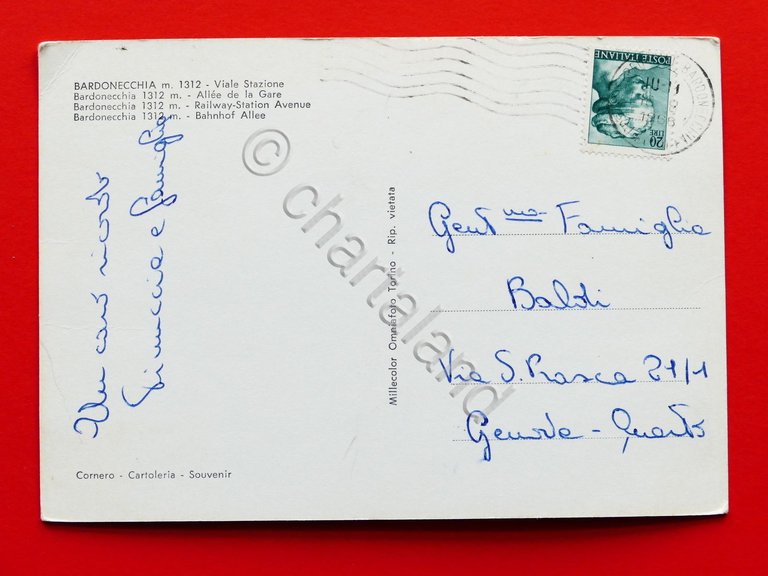 BARDONECCHIA m. 1312 - Viale Stazione
Bardonecchia 1312 m. - Allée de la Gare
Bardonecchia 1312 m. - Railway-Station Avenue
Bardonecchia 1312 m. - Bahnhof Allee
POSTE ITALIANE
LIRE 20
Un caro ricordo
Giuccia e Famiglia
Millecolor Omniafoto Torino - Rip. vietata
Gent.ma Famiglia
Baldi
Via S. Prasca 21/1
Genova - Quarto
Cornero - Cartoleria - Souvenir
© chartaland